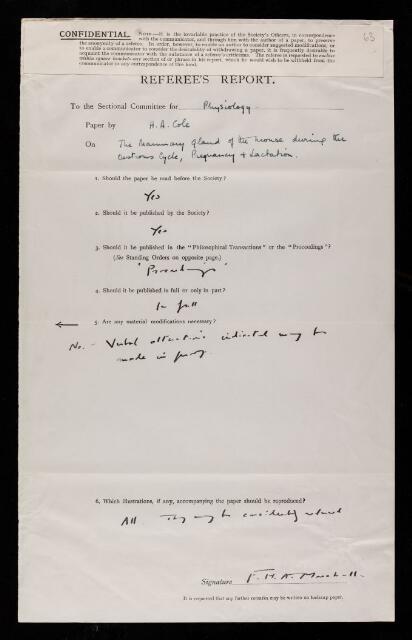 63
CONFIDENTIAL. NOTE—It is the invariable practice of the Society's Officers, in correspondence
with the communicator, and through him with the author of a paper, to preserve
the anonymity of a referee. In order, however, to enable an author to consider suggested modifications, or
to enable a communicator to consider the desirability of withdrawing a paper, it is frequently desirable to
acquaint the communicator with the substance of a referee's criticisms. The referee is requested to
square brackets any section of or phrase in his report, which he would wish to be withheld from the
communicator in any correspondence of this kind.
REFEREE'S REPORT.
To the Sectional Committee for Physiology
Paper by H. A. Cole
On The Mammary gland of the Mouse during the
Oestrous Cycle, Pregnancy + Lactation.
1. Should the paper be read before the Society?
Yes
2. Should it be published by the Society?
Yes
3. Should it be published in the "Philosophical Transactions" or the "Proceedings"?
(See Standing Orders on opposite page.)
"Proceedings"
4. Should it be published in full or only in part?
In full
5. Are any material modifications necessary?
No. - Verbal alterations indicated may be
made in proof.
6. Which illustrations, if any, accompanying the paper should be reproduced?
All. They may be considerably reduced
Signature F. H. A. Marshall.
It is requested that any further remarks may be written on foolscap paper.